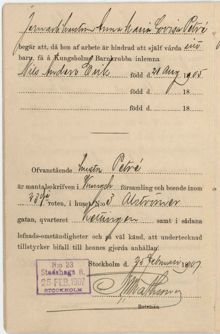 Jernarb. hustrun Anna Maria Lovisa Petré
begär att, då hon af arbete är hindrad att själf vårda sitt
barn, få å Kungsholms Barnkrubba inlemna
Nils Anders Erik född d. 28 Aug 1905.
född d. 18
född d. 18
Ofvanstående hustru Petré
är mantalsskrifven i Kungsh. församling och boende inom
roten, i hus N:o 2 
gatan, qvarteret samt i sådana
lefnads-omständigheter och så väl känd, att undertecknad
tillstyrker bifall till hennes gjorda anhållan.
Stockholm d. 25 Februari 1907
Roteman
N:o 23
Stadshags R.
25 FEB. 1907
STOCKHOLM